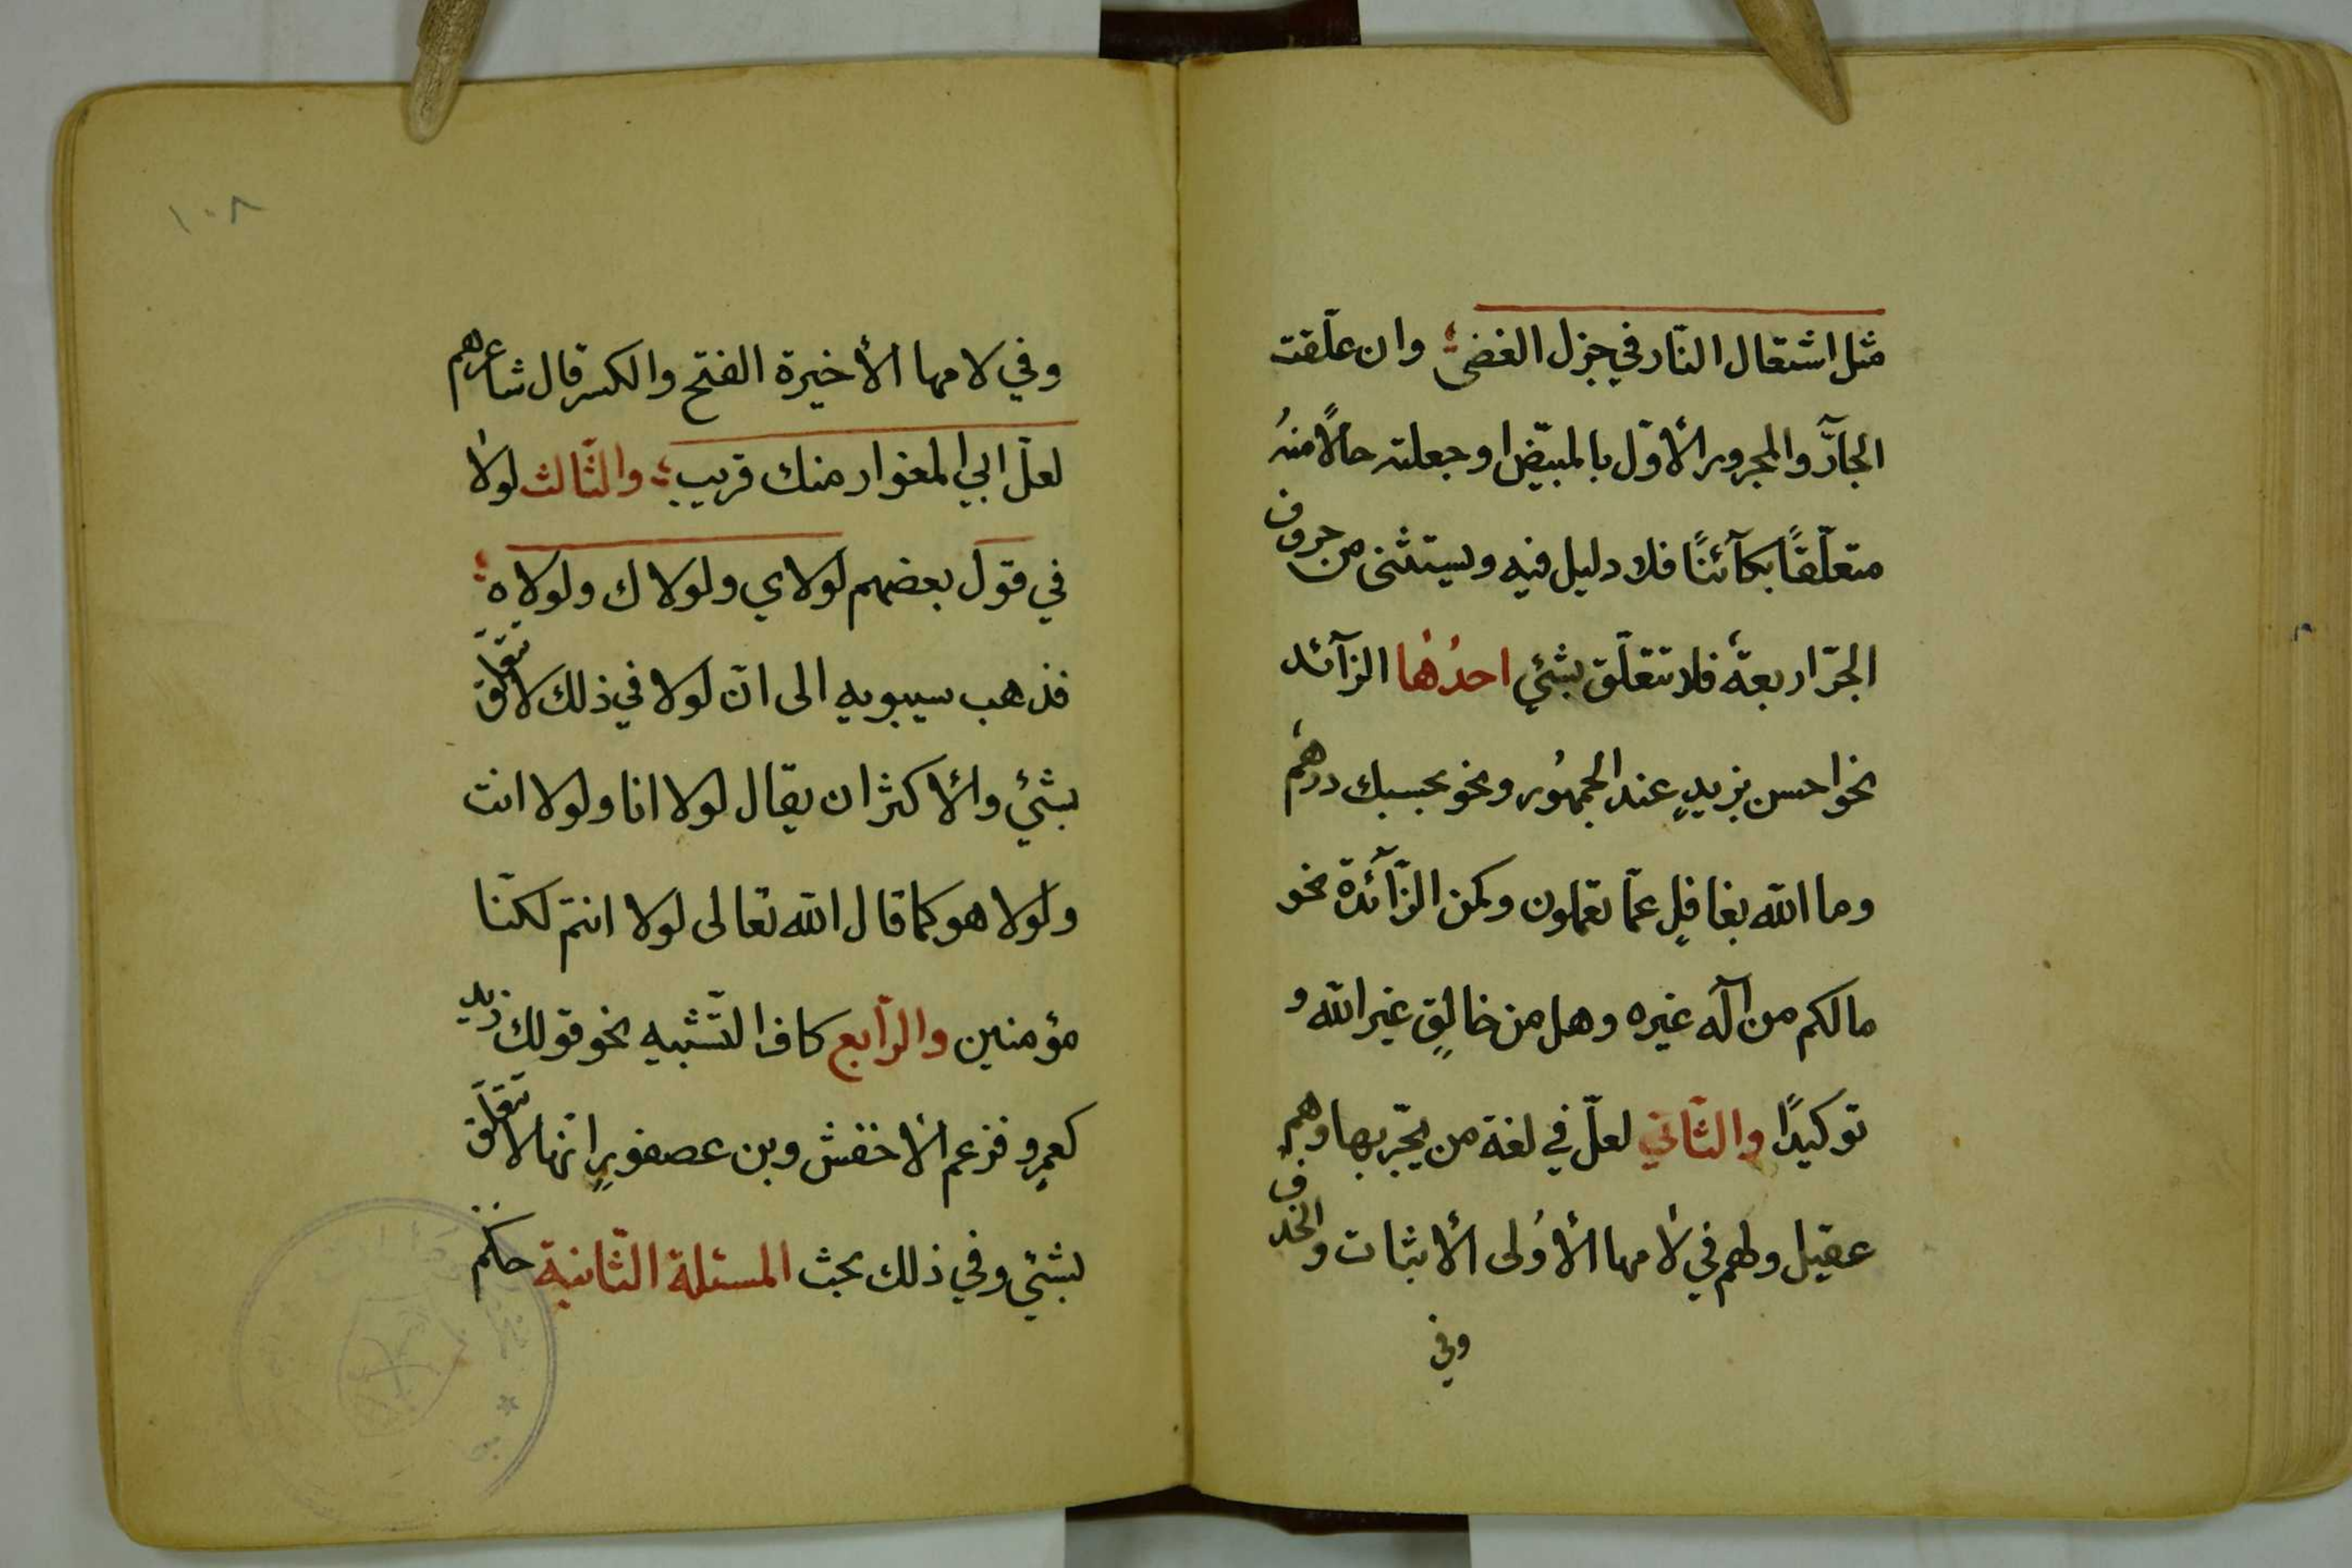 مثل اشتعال النّار في جزل الغضى وان علّقت
الجآرّ والمجرور الأوّل بالمبيّض او جعلته حالًا منهُ
متعلّقًا بكآئنًا فلا دليل فيه ويستثنى من حروف
الجرّ اربعةٌ فلا تتعلّق بشئٍ احدُها الزآئد
نحو احسن بزيدٍ عند الجمهُور ونحو بحسبك درهمٌ
وما الله بغافلٍ عمّا تعملون وكمن الزّآئدة نحو
مالكم من آلٰه غيره وهل من خالقٍ غير الله و
توكيدًا والثّاني لعلّ في لغة من يجّر بها وهم
عقيل ولهم في لامها الأوُلى الأثبات والحذف
وفي
١٠٨
وفي لامها الأخيرة الفتح والكسر قال شاعرهم
لعلّ ابي المغوار منك قريب والثّالث لولا
في قول بعضهم لولاي ولولاك ولولاه
فذهب سيبويه الى انّ لولا في ذلك لا تتعلّق
بشئٍ والأكثر ان يقال لولا انا ولولا انت
ولولا هو كما قال الله تعالى لولا انتم لكنّا
مؤمنين والرّابع كاف التّشبيه نحو قولك زيد
كعمرٍو فزعم الأخفش وبن عصفورٍ انّها لا تتعلّق
بشئٍ وفي ذلك بحث المسئلة الثّانية حكم